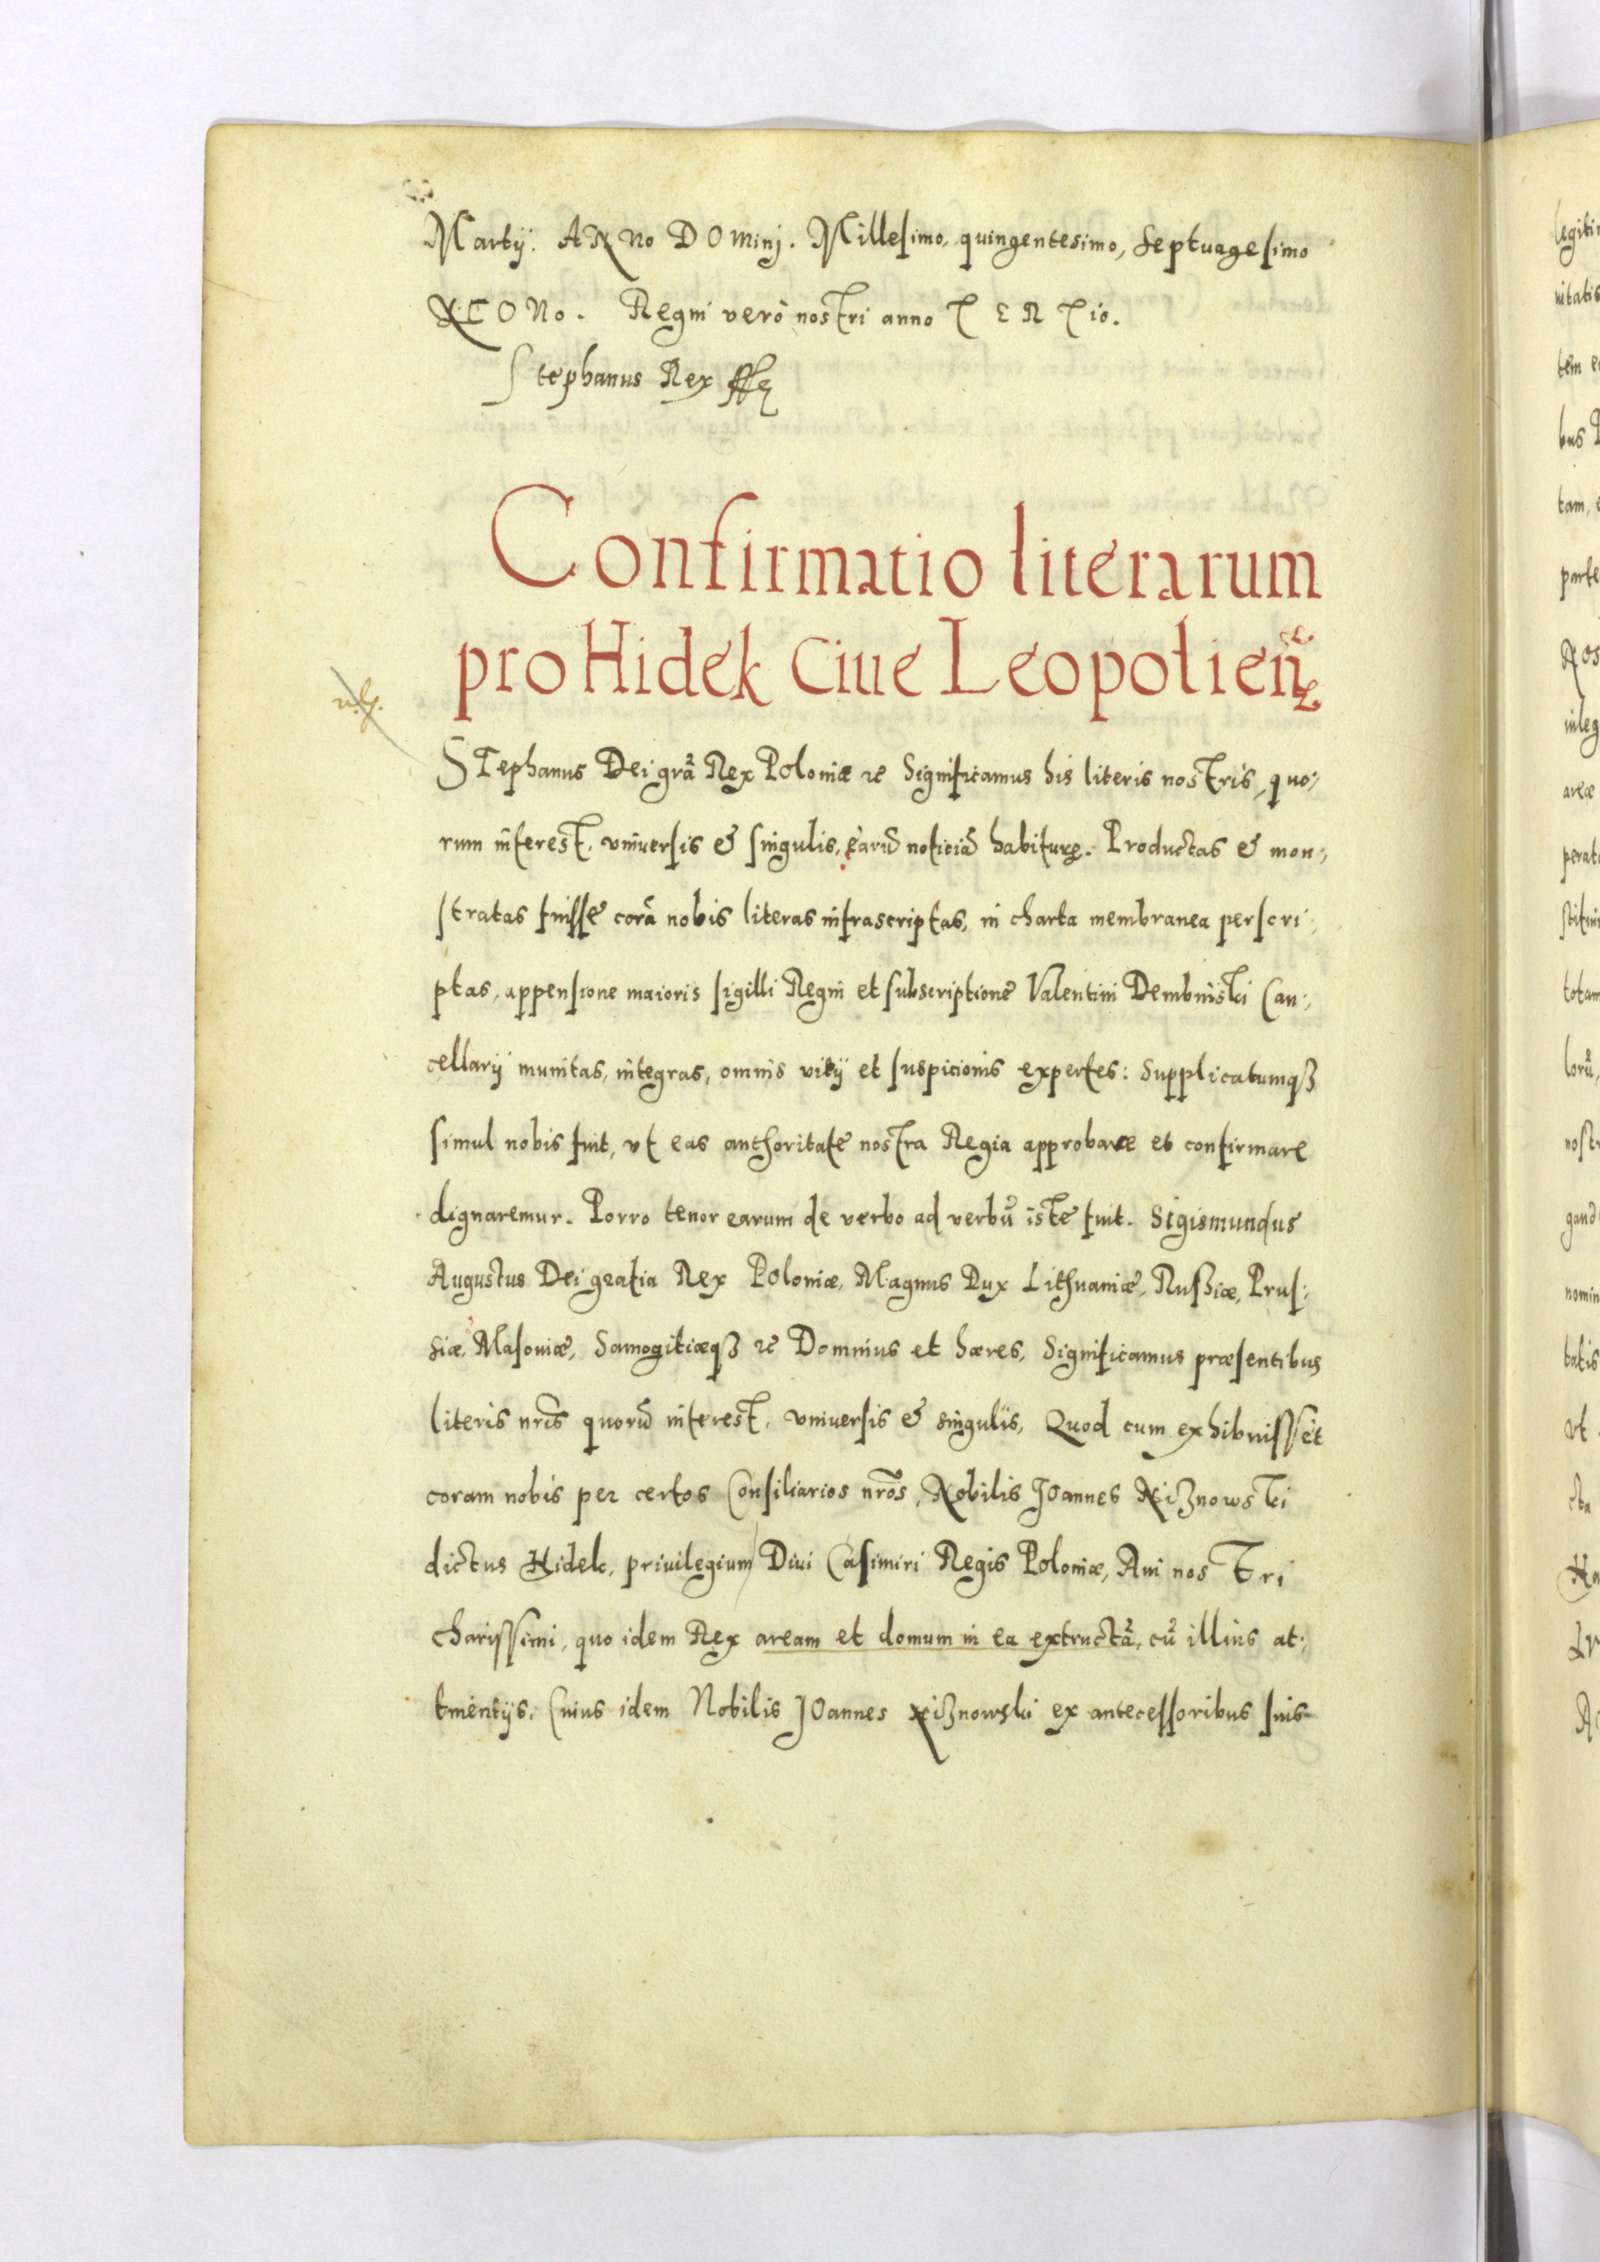 Martij. ANNo DOMinj. Millesimo, quingentesimo, Septuagesimo
NONo. Regni verò nostri anno TERTio.
Stephanus Rex
Confirmatio literarum
pro Hidek Ciue Leopolien̄
Stephanus Dei grã Rex Poloniæ ꝛc Significamus his literis nostris, quo-
rum interest, vniuersis & singulis, earũ noticiã habituris. Productas & mon-
stratas fuisse corã nobis literas infrascriptas, in charta membranea perscri-
ptas, appensione maioris sigilli Regni et subscriptione Valentini Dembinski Can-
cellarij munitas, integras, omnis vitij et suspicionis expertes: Supplicatumqꝫ
simul nobis fuit, vt eas authoritate nostra Regia approbare et confirmare
dignaremur. Porro tenor earum de verbo ad verbũ iste fuit. Sigismundus
Augustus Dei gratia Rex Poloniæ, Magnus Dux Lithuaniæ, Rußiæ, Prus-
siæ, Masouiæ, Samogitiæqꝫ ꝛc Dominus et hæres, Significamus præsentibus
literis nr̃is quorũ interest, vniuersis & singulis, Quod cum exhibuisset
coram nobis per certos Consiliarios nr̃os, Nobilis Joannes Niznowski
dictus Hidek, priuilegium Diui Casimiri Regis Poloniæ, Aui nostri
charissimi, quo idem Rex aream et domum in ea extructã, cũ illius at-
tinentijs, Cuius idem Nobilis Joannes Niznowski ex antecessoribus suis